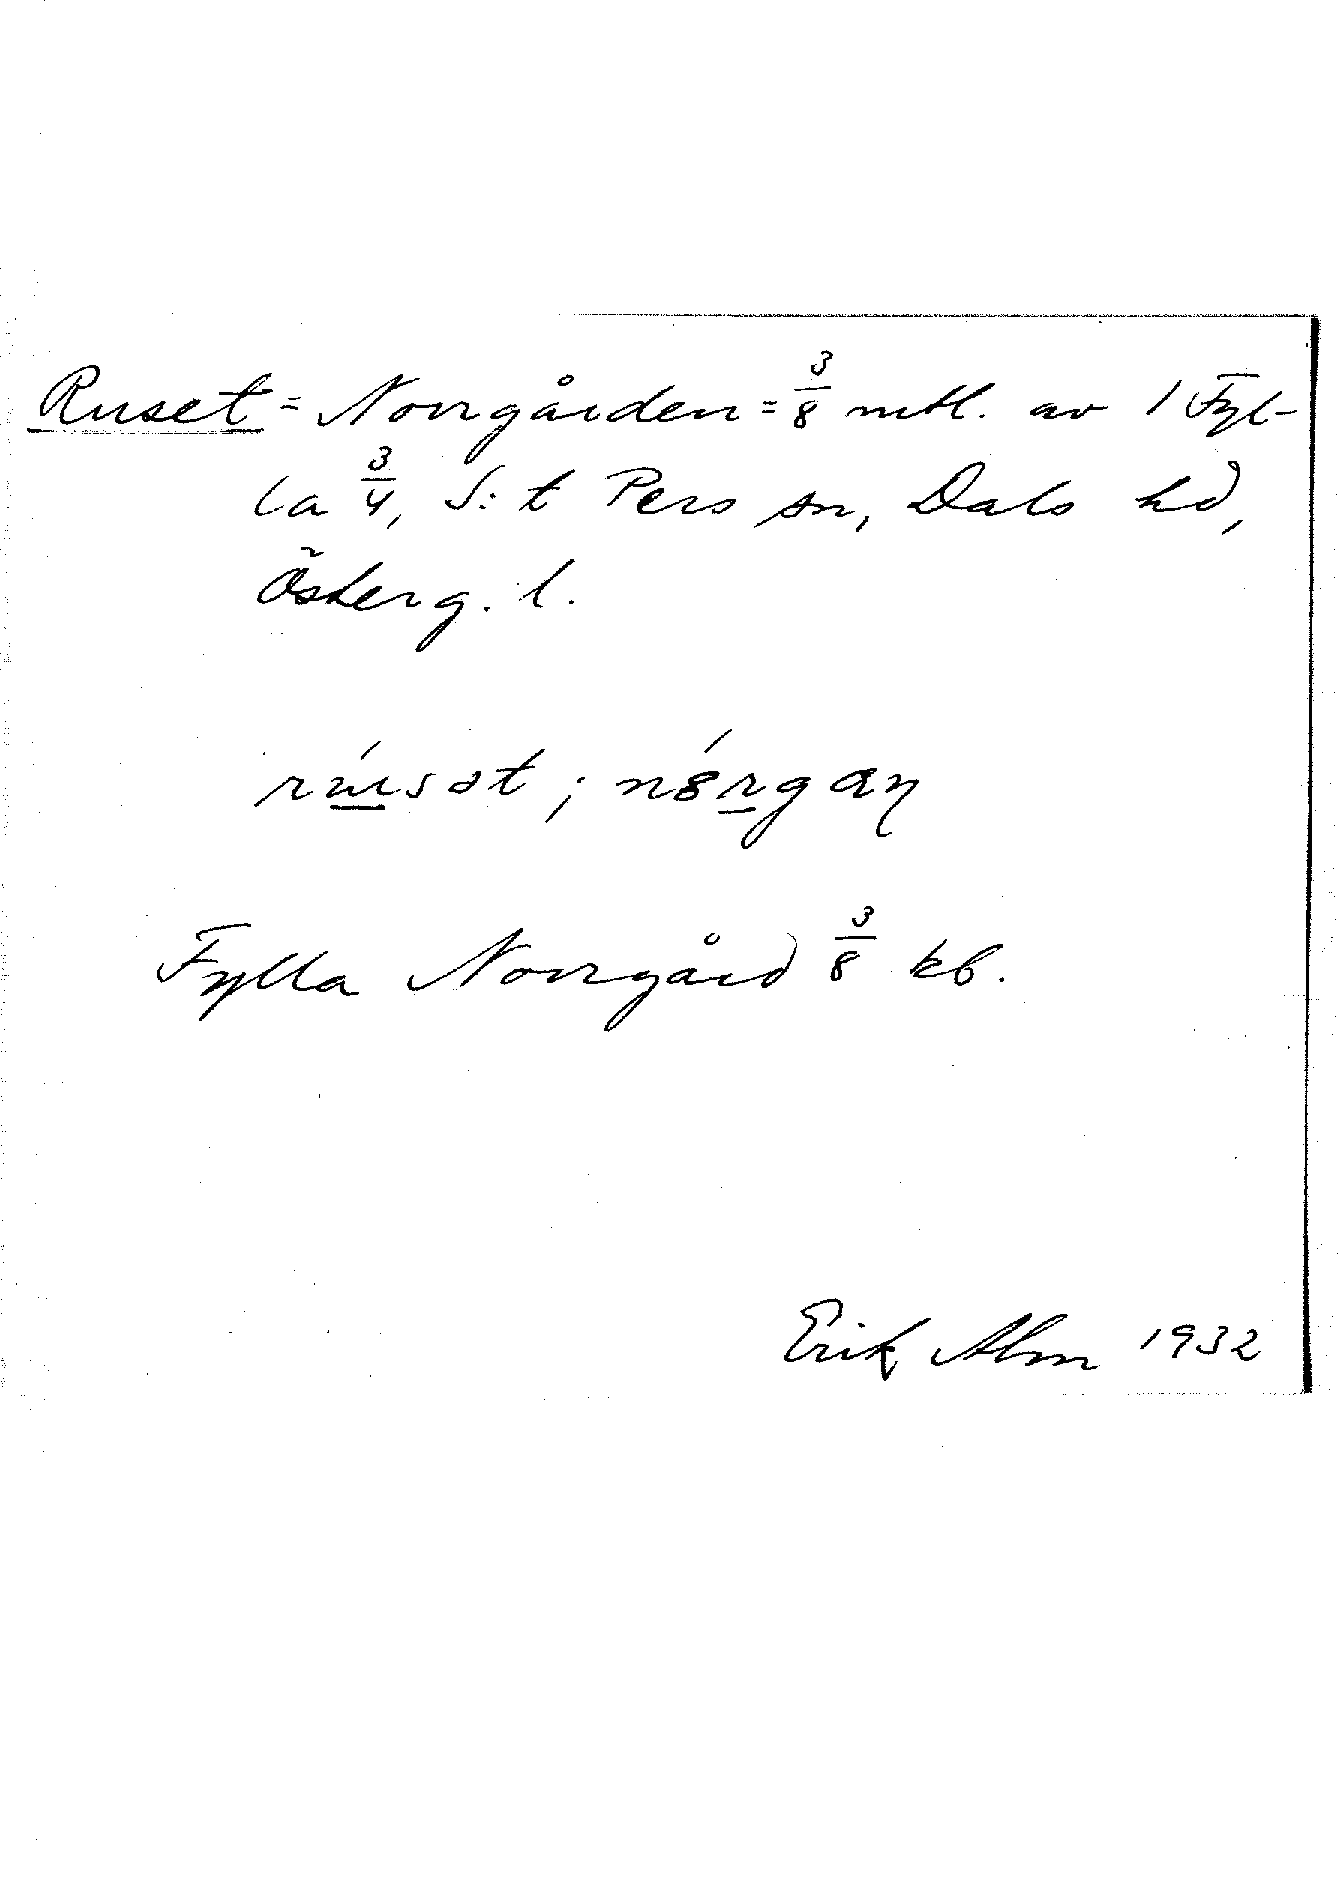 Ruset = Norrgården = 3/8 mtl. av 1 Fyl-
la 3/4, S:t Pers sn, Dals hd,
Österg. l.
rúsət ; nórgaɳ
Fylla Norrgård 3/8 kb.
Erik Alm 1932